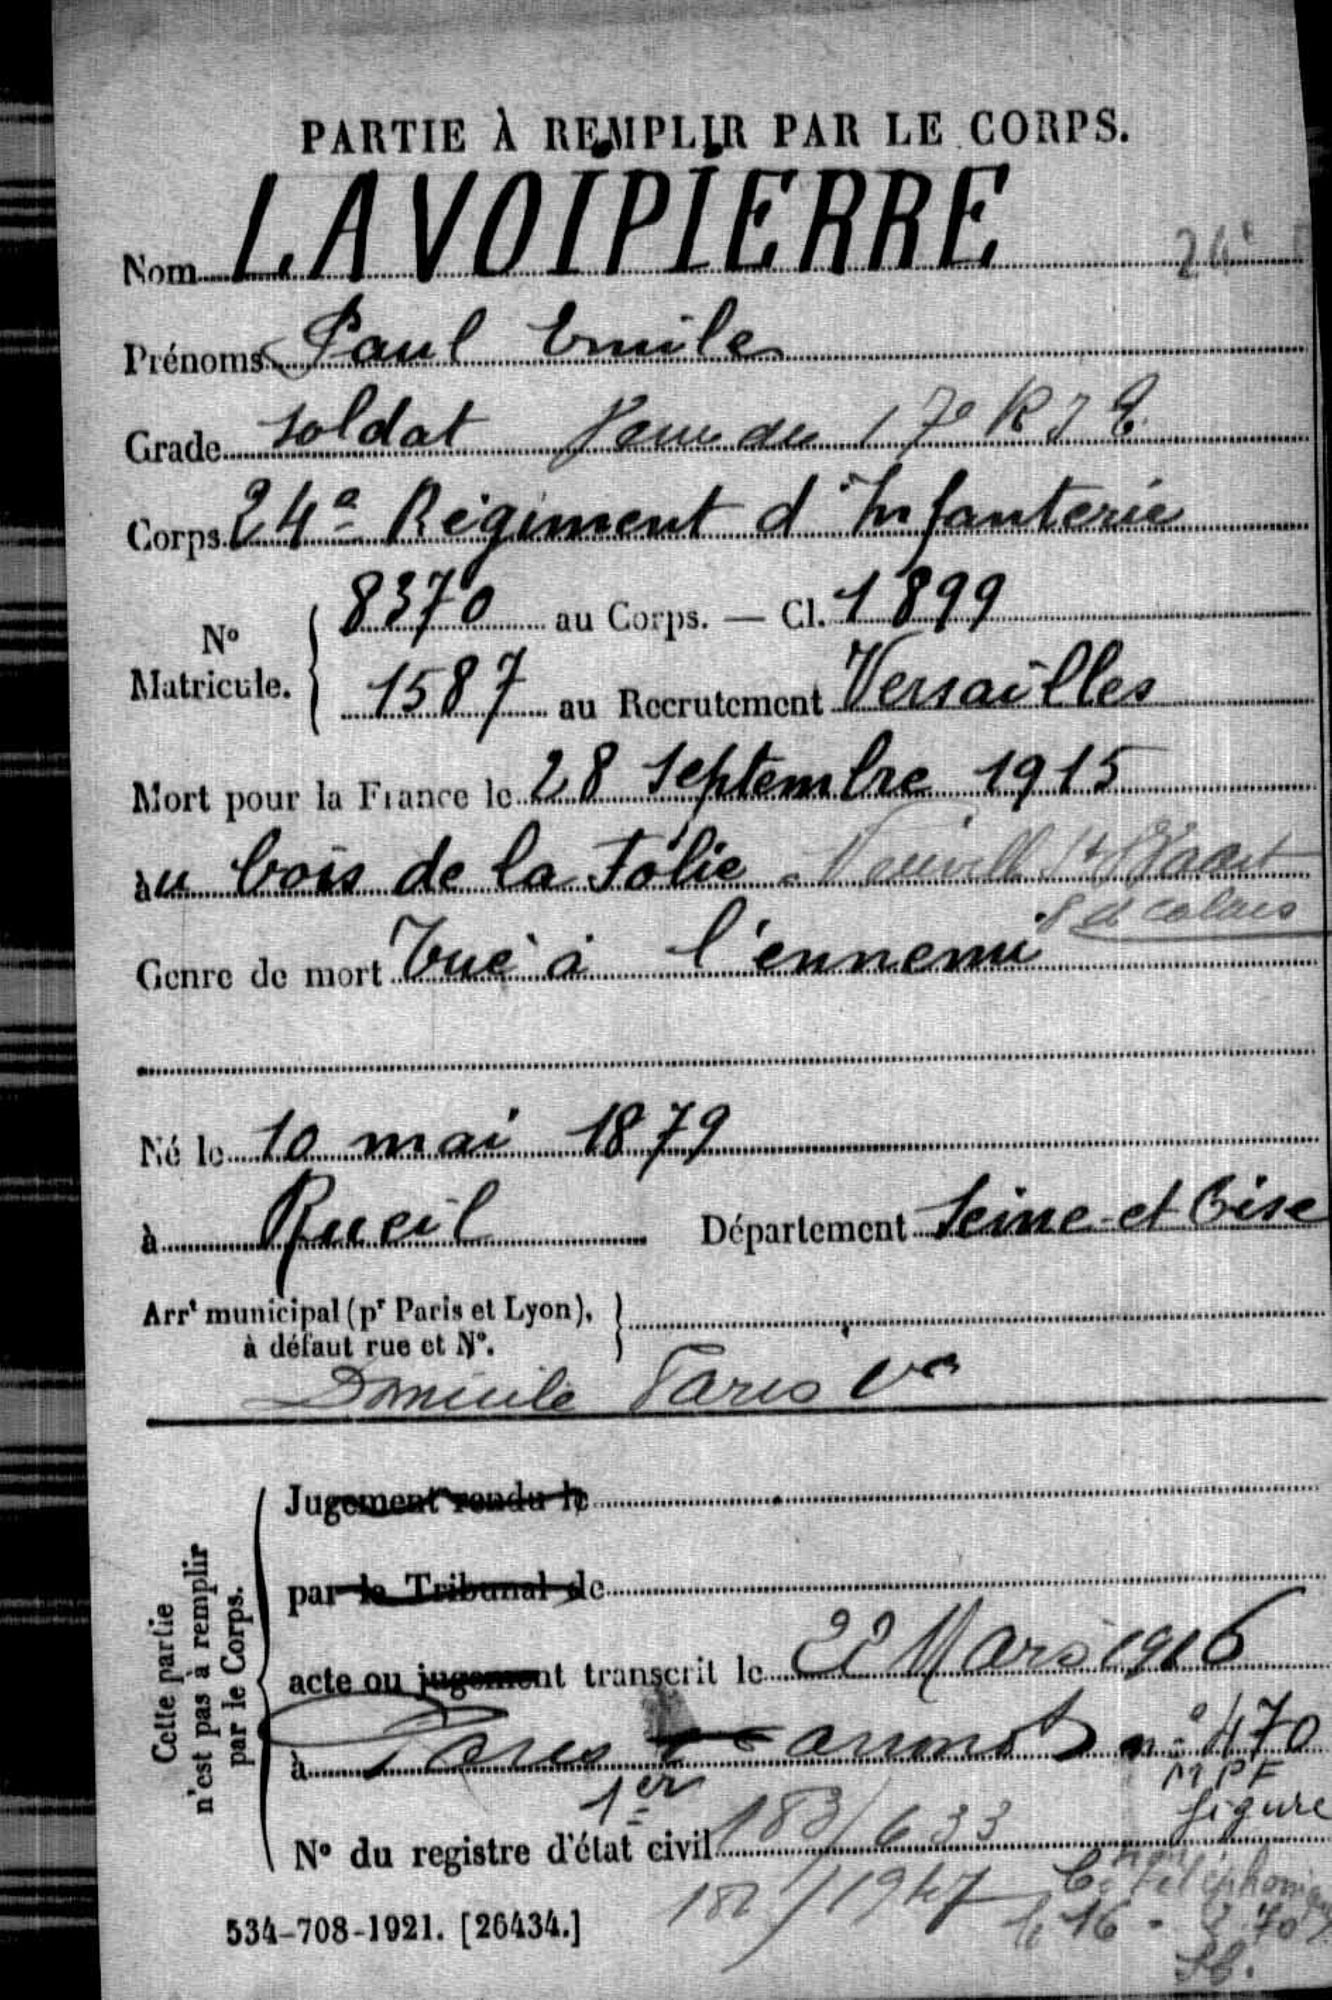 PARTIE À REMPLIR PAR LE CORPS.
Nom LAVOIPIERRE 24e
Prénoms Paul Emile
Grade soldat Venu du 17e R I
Corps 24e Régiment d'Infanterie
No Matricule. 8370 au Corps. — Cl. 1899
1587 au Recrutement Versailles
Mort pour la France le 28 Septembre 1915
àu bois de la Folie - Neuville St Waast
P de Calais
Genre de mort Tué à l'ennemi
Né le 10 mai 1879
à Rueil Département Seine-et-Oise
Arrt municipal (pr Paris et Lyon),
à défaut rue et No.
Domicile Paris
Cette partie
n'est pas à remplir
par le Corps.
Jugement rendu le
par le Tribunal de
acte ou jugement transcrit le 22 Mars 1916
à Paris arrondt no 470
1er
MPF
figure
No du registre d'état civil 183/633
Con téléphonique
le 16
534-708-1921. [26434.]